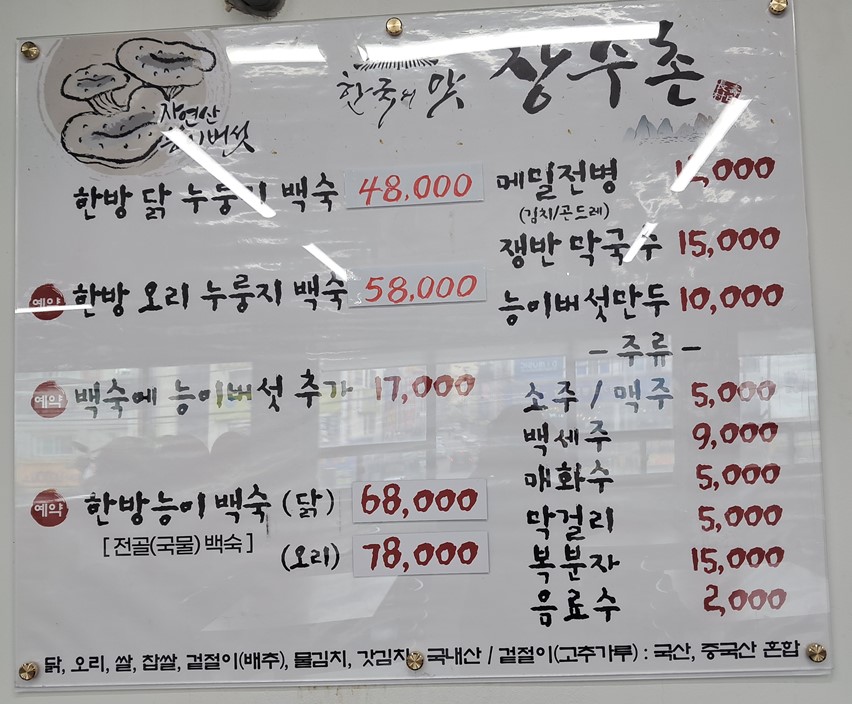 자연산
능이버섯
한국의 맛 장수촌
한방 닭 누룽지 백숙 48,000
예약 한방 오리 누룽지 백숙 58,000
예약 백숙에 능이버섯 추가 17,000
예약 한방능이 백숙 (닭) 68,000
[ 전골(국물) 백숙 ] (오리) 78,000
메밀전병
(김치/곤드레)
쟁반 막국수 15,000
능이버섯만두 10,000
- 주류 -
소주 / 맥주 5,000
백세주 9,000
매화수 5,000
막걸리 5,000
복분자 15,000
음료수 2,000
닭, 오리, 쌀, 찹쌀, 겉절이(배추), 물김치, 갓김치 국내산 / 겉절이(고추가루) : 국산, 중국산 혼합